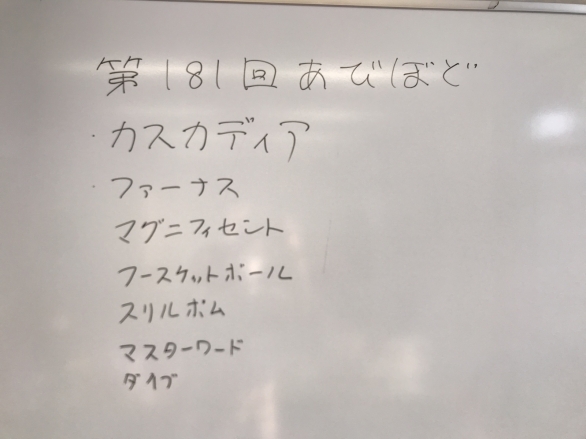 第181回あびぼど
・カスカディア
・ファーナス
マグニフィセント
フースケットボール
スリルボム
マスターワード
ダイブ